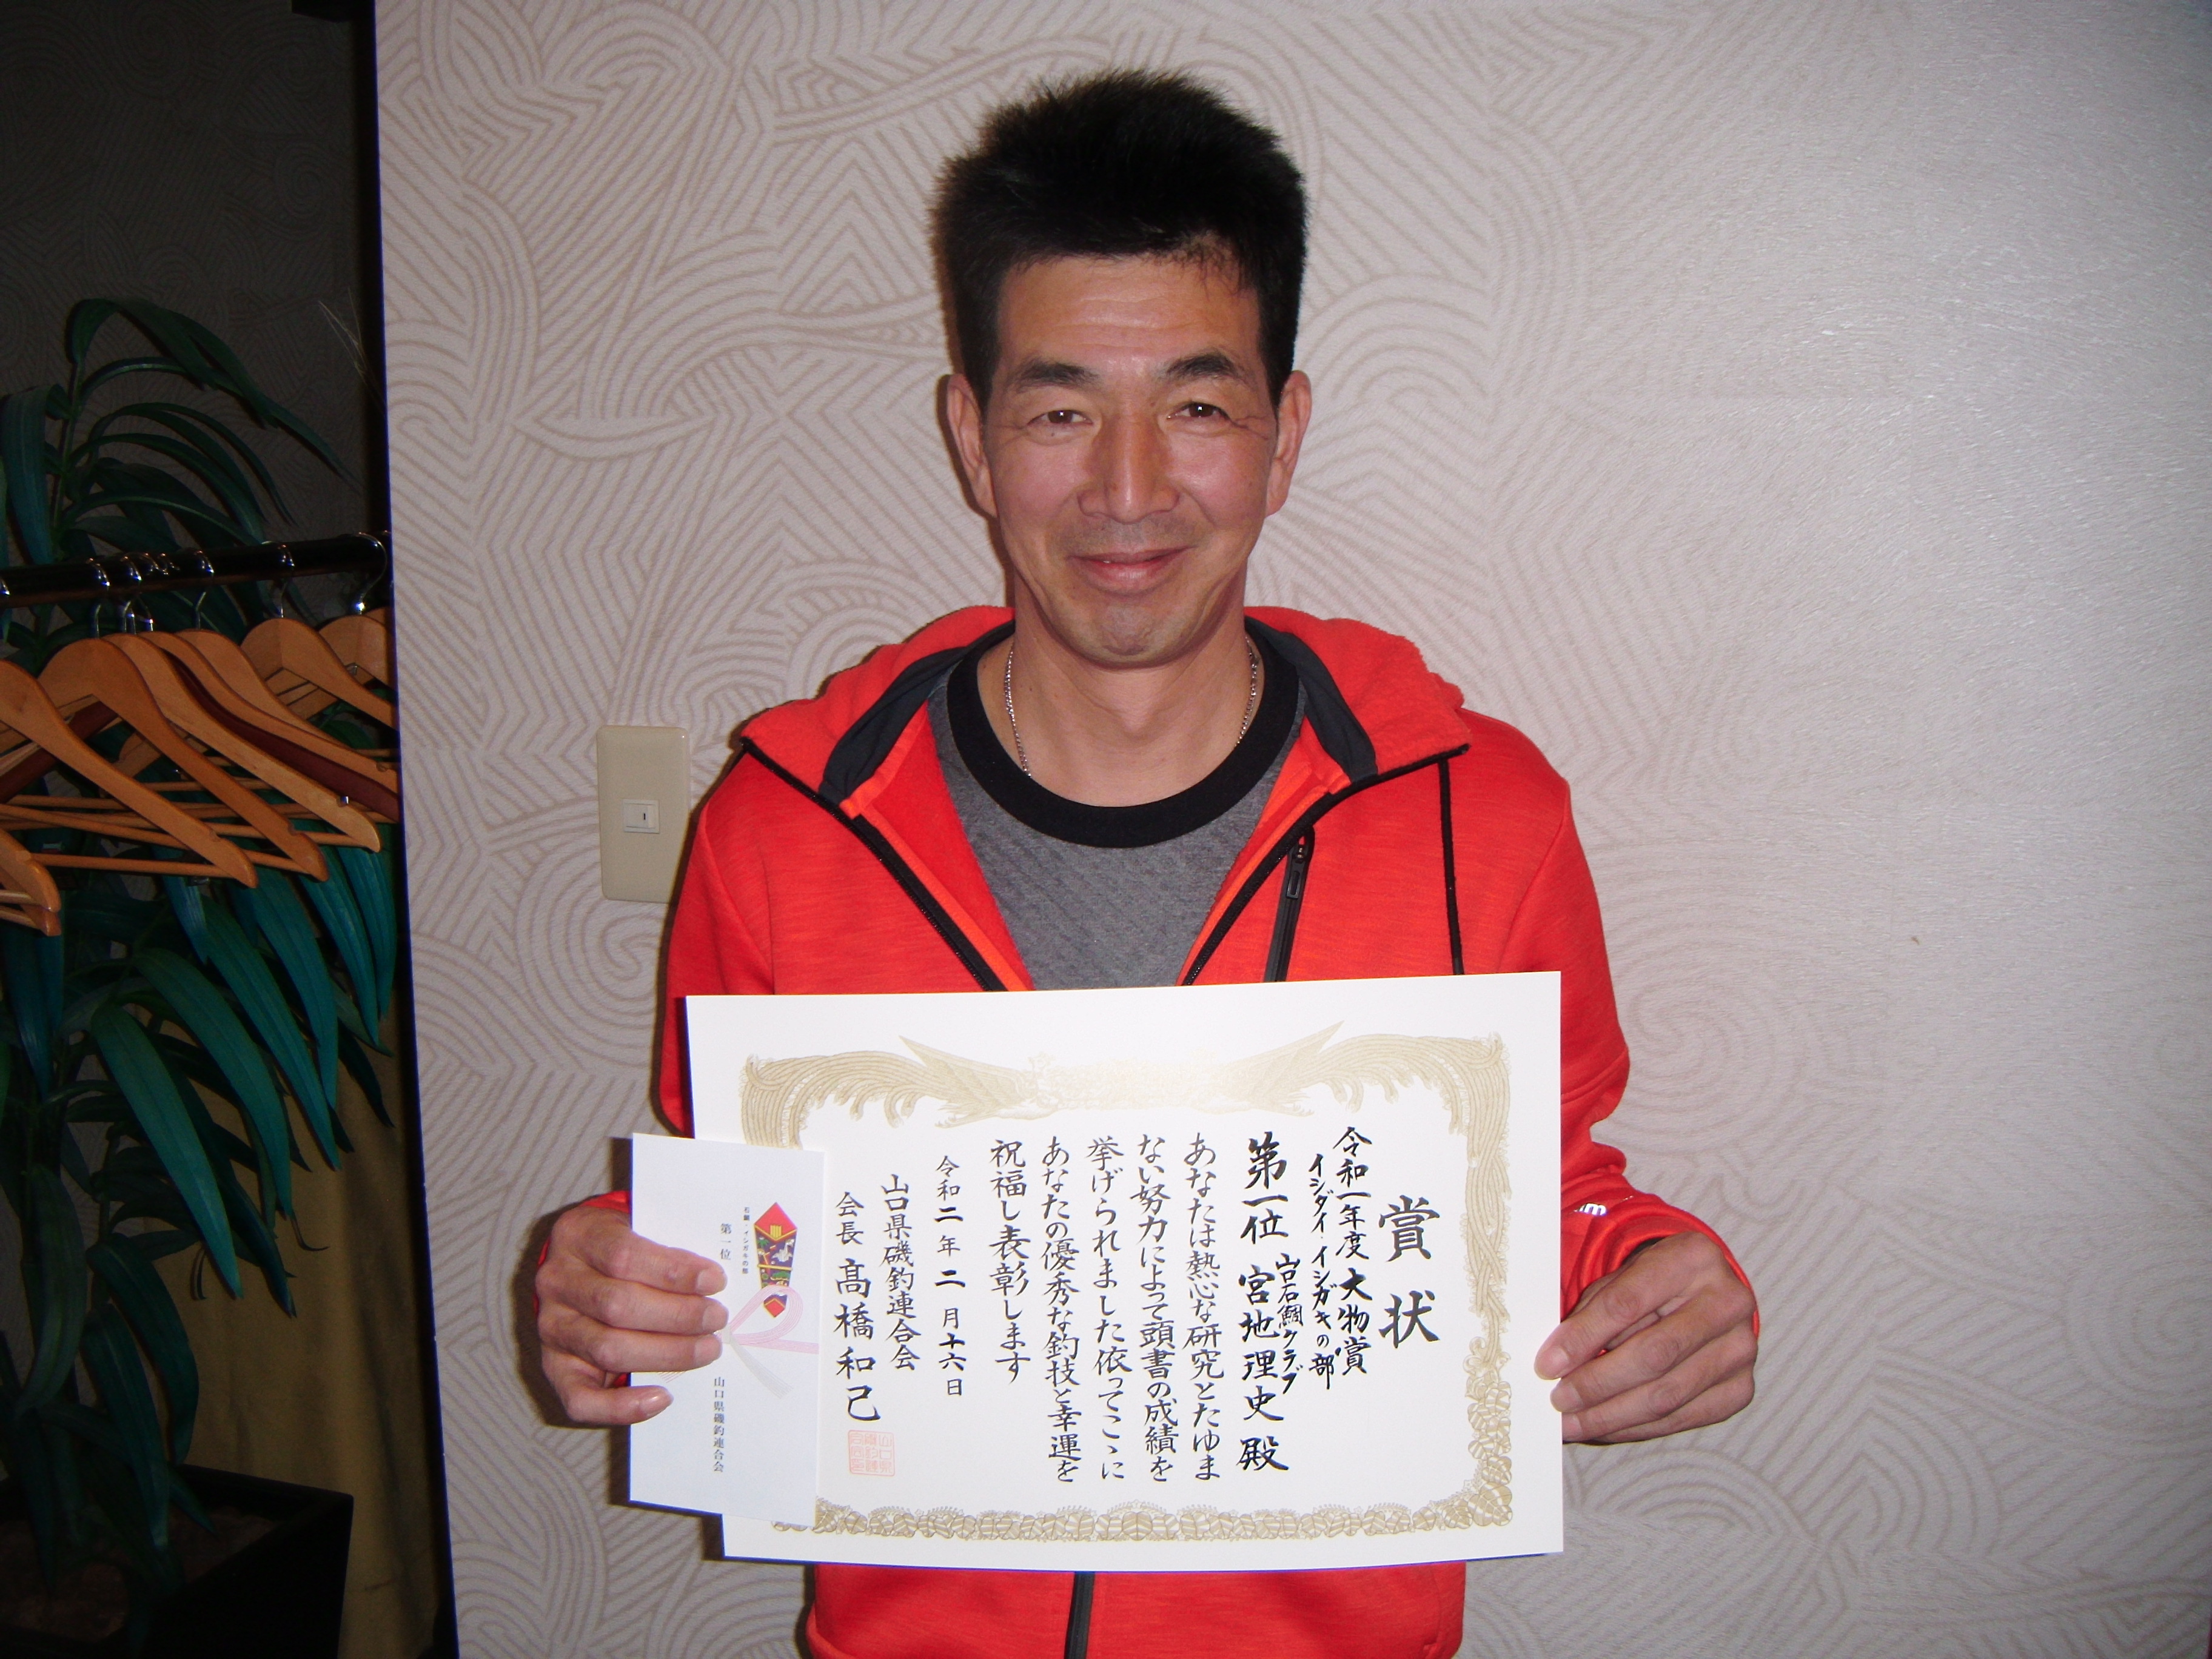 賞状
令和一年度大物賞
イシダイ・イシガキの部
山口石鯛クラブ
第一位 宮地理史殿
あなたは熱心な研究とたゆま
ない努力によって頭書の成績を
挙げられました依ってこゝに
あなたの優秀な釣技と幸運を
祝福し表彰します
令和二年二月十六日
山口県磯釣連合会
会長 髙橋和己
石鯛・イシガキの部
第一位
山口県磯釣連合会